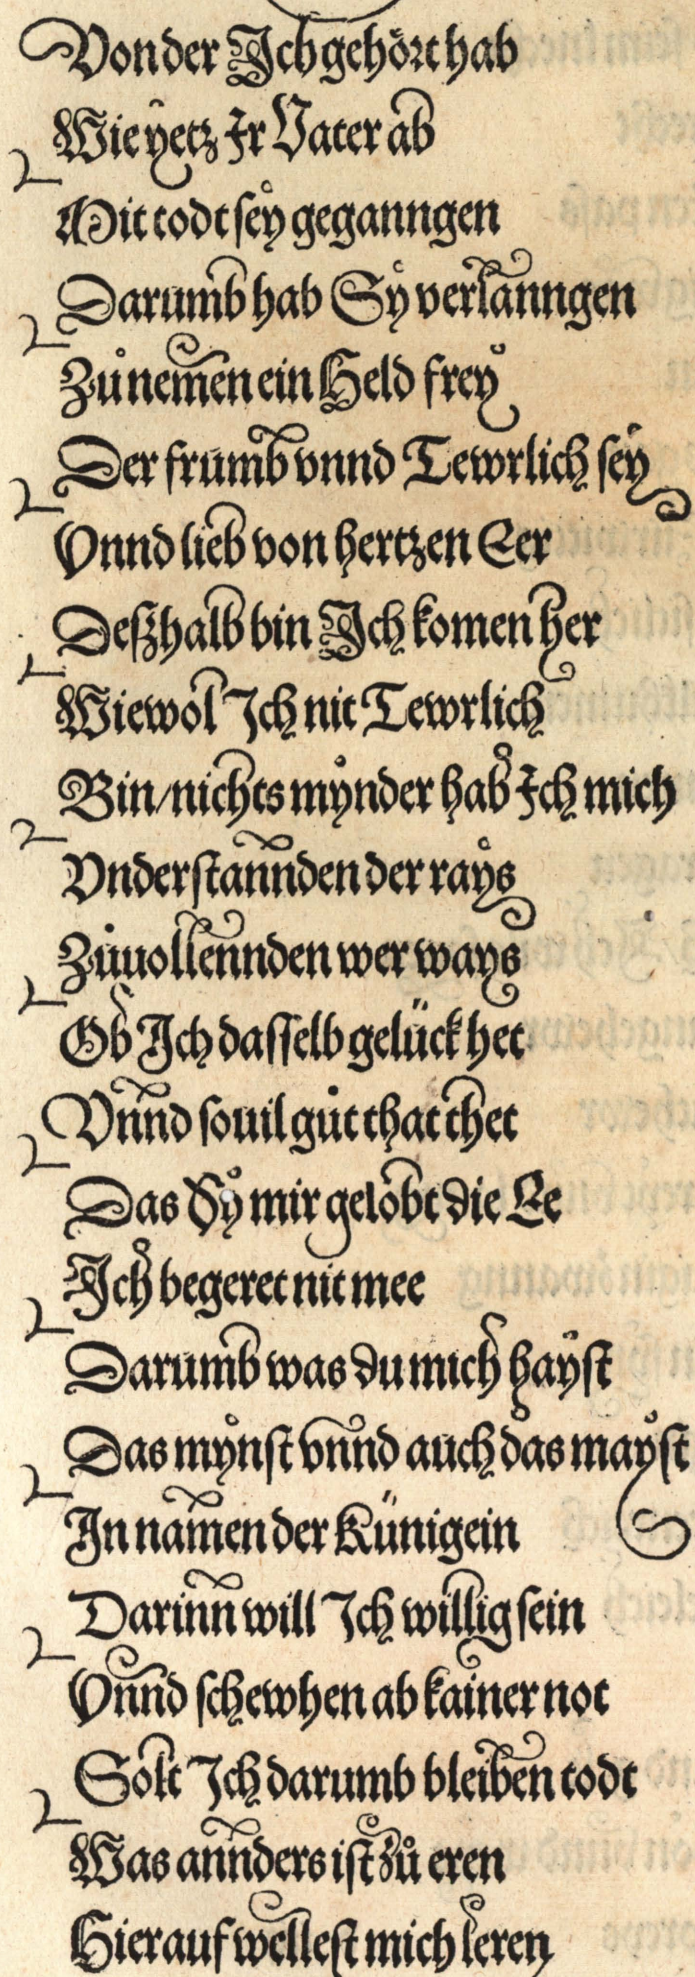 Von der Ich gehört hab
Wie yetz Ir Vater ab
Mit todt sey geganngen
Darumb hab Sy verlanngen
Zů nemen ein Held frey
Der frumb vnnd Tewrlich sey
Vnnd lieb von hertzen Eer
Deßhalb bin Ich komen her
Wiewol Ich nit Tewrlich
Bin/nichts mynder hab Ich mich
Vnderstannden der rays
Zůuollennden wer ways
Ob Ich dasselb gelück het
Vnnd souil gůt that thet
Das Sy mir gelobt die Ee
Ich begeret nit mee
Darumb was du mich hayst
Das mynst vnnd auch das mayst
In namen der Künigein
Darinn will Ich willig sein
Vnnd schewhen ab kainer not
Solt Ich darumb bleiben todt
Was annders ist zů eren
Hierauf wellest mich leren